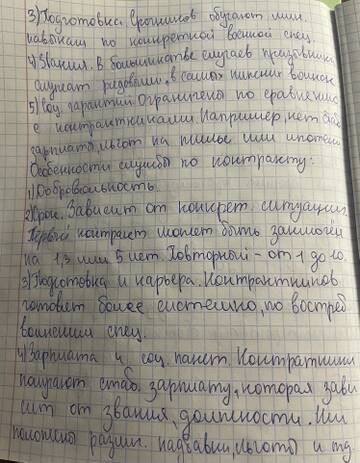 3) Подготовка. Срочников обучают мин.
навыкам по конкретной военной спец.
4) Звания. В большинстве случаев призывники
служат рядовыми, в самых низших воинск
5) Соц. гарантии. Ограничены по сравнению
с контрактниками. Например, нет
зарплаты, льгот на жилье или ипотеки
Особенности службы по контракту:
1) Добровольность.
2) Срок. Зависит от конкрет. ситуации.
Первый контракт может быть заключен
на 1, 3 или 5 лет. Повторный - от 1 до 10.
3) Подготовка и карьера. Контрактников
готовят более системно, по востреб
военным спец.
4) Зарплата и соц. пакет. Контрактники
получают стаб. зарплату, которая зави
сит от звания, должности. Им
положены различ. надбавки, льготы и тд